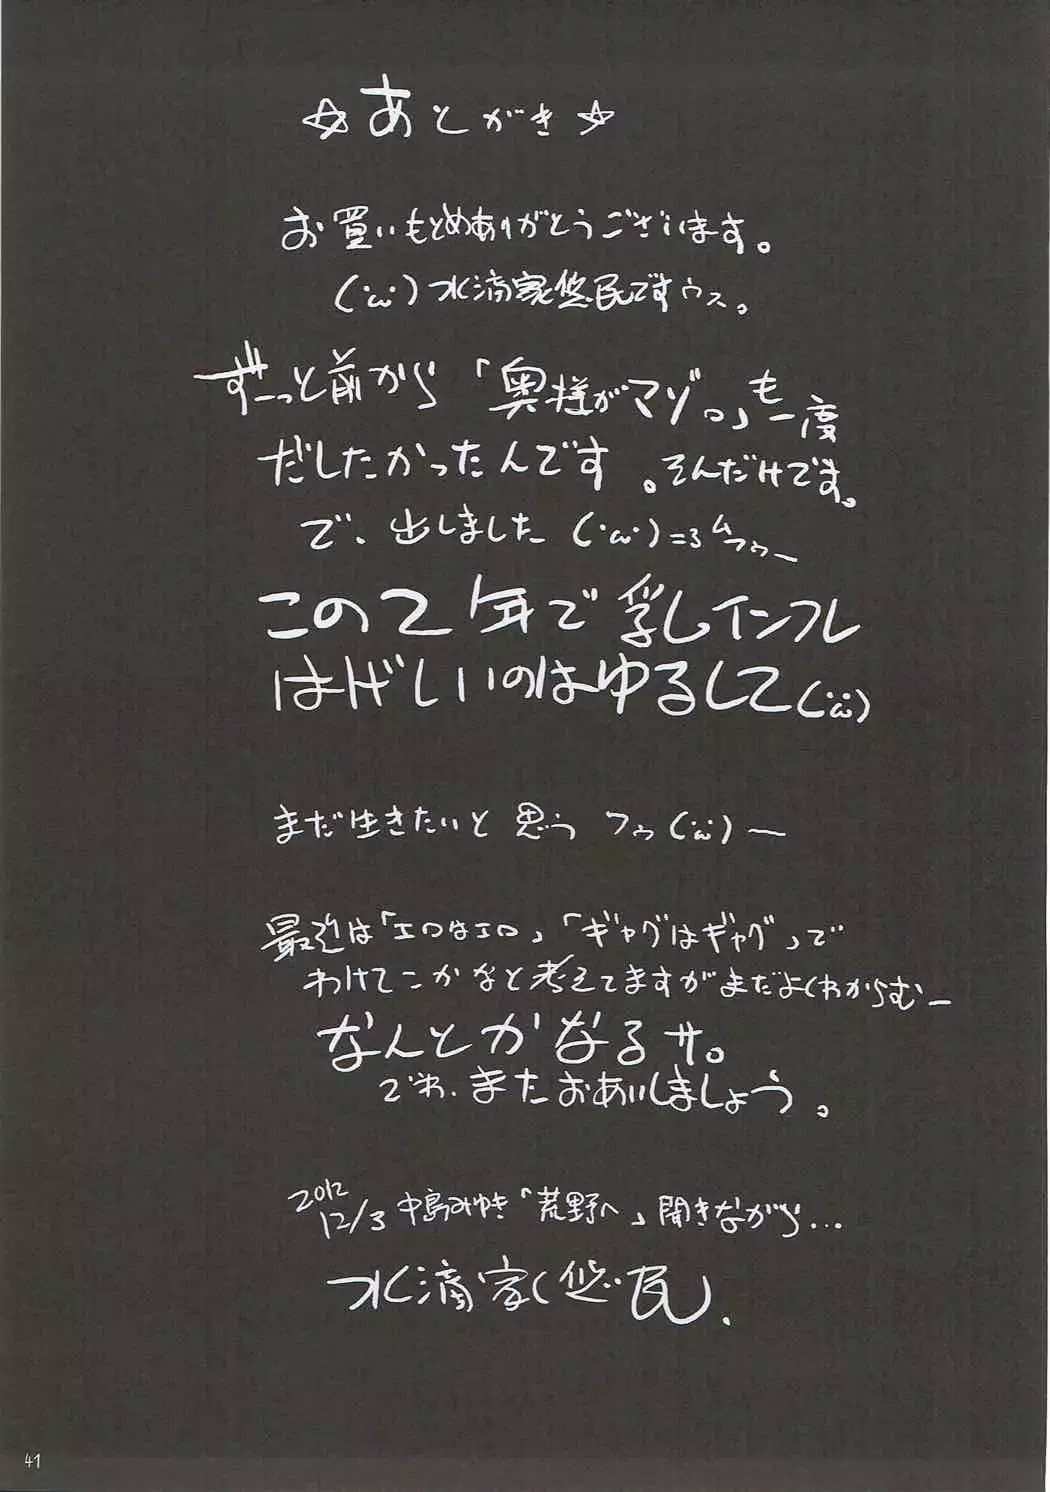 ☆あとがき☆
お買いもとめありがとうございます。
(・ω・)水滴家悠民ですウス。
ずーっと前から「奥様がマゾ。」も一度
だしたかったんです。そんだけです。
で、出しました(・ω・)=3ムフゥー
この2年で乳しインフレ
はげしいのはゆるして(・ω・)
まだ生きたいと思うフゥ(・ω・)ー
最近は「エロはエロ」「ギャグはギャグ」で
わけてこかなと考えてますがまだよくわからむー
なんとかなるサ。
でわ、またおあいしましょう。
2012
12/3 中島みゆき「荒野へ」聞きながら...
水滴家悠民.
41